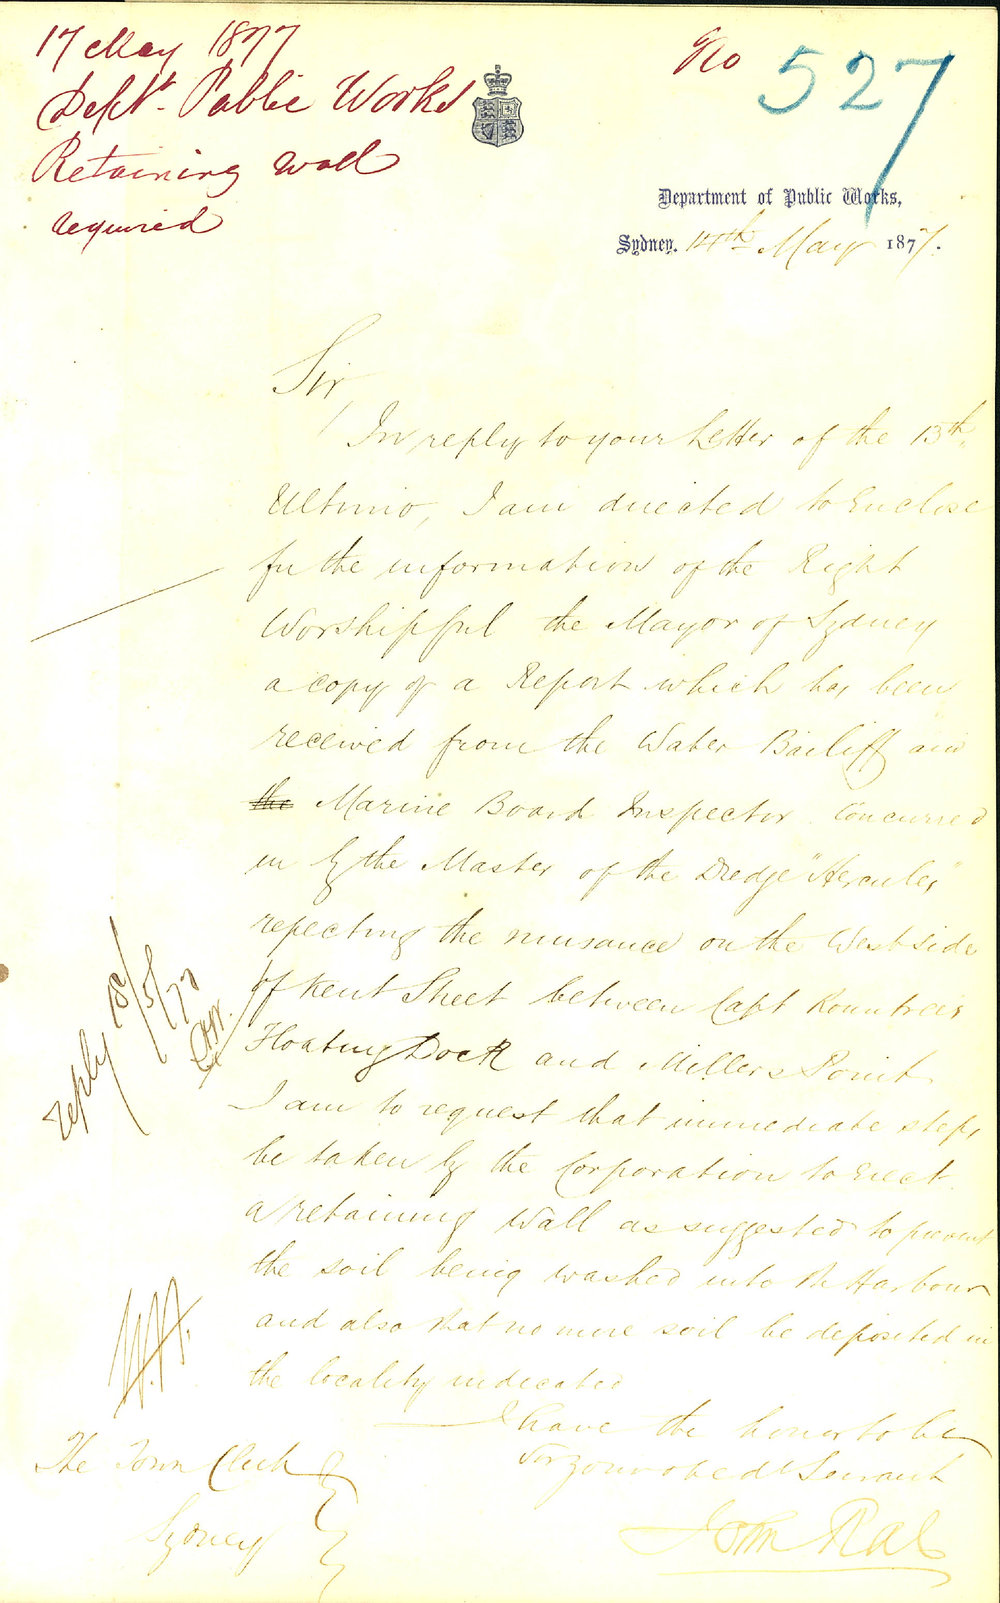 17 May 1877
Dept. Public Works
Retaining wall
required
No 527
Department of Public Works,
Sydney. 14th May 1877.
Sir,
In reply to your Letter of the 13th.
Ultimo, I am directed to Enclose
for the information of the Right
Worshipful the Mayor of Sydney
a copy of a Report which has been
received from the Water Bailiff and
the Marine Board Inspector. Concurred
in by the Master of the Dredge "Hercules"
respecting the nuisance on the West side
of Kent Street between Capt Rountree's
Floating Dock and Millers Point.
I am to request that immediate steps
be taken by the Corporation to Erect
a retaining Wall as suggested to prevent
the soil being washed into the Harbour
and also that no more soil be deposited in
the locality indicated
I have the honor to be
Sir your obedt Servant
John Rae
The Town Clerk
Sydney
reply 18/5/77